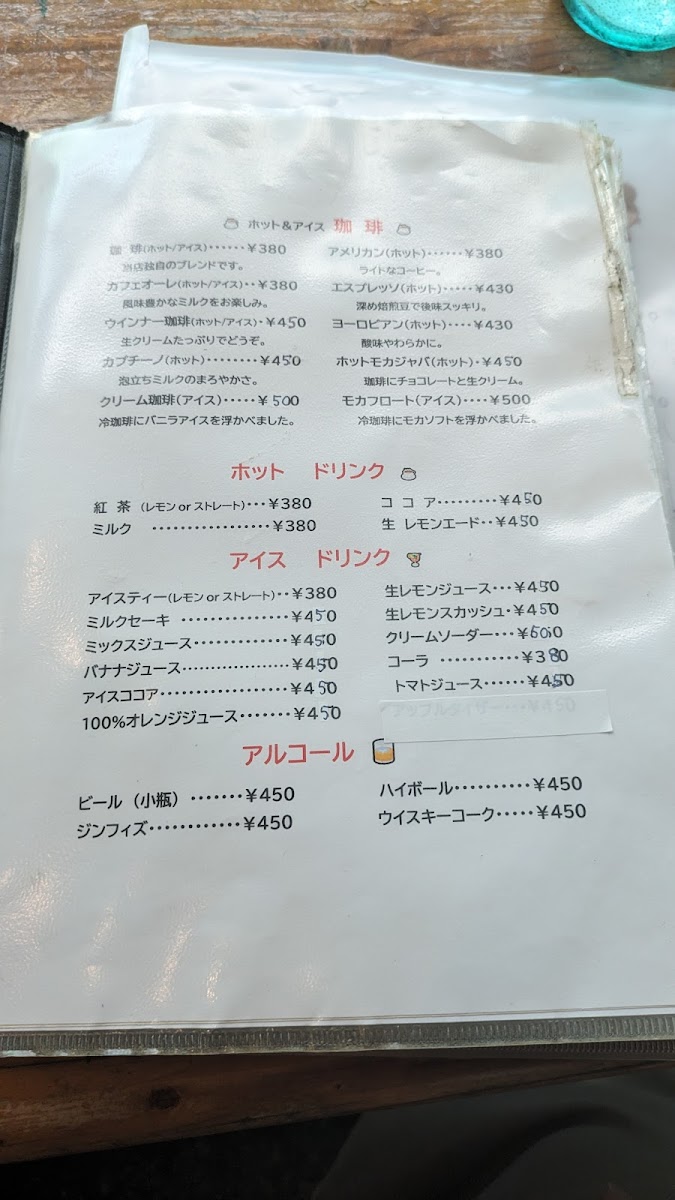 ホット&アイス 珈 琲
珈 琲(ホット/アイス)‥‥‥¥380
当店独自のブレンドです。
カフェオーレ(ホット/アイス)‥¥380
風味豊かなミルクをお楽しみ。
ウインナー珈琲(ホット/アイス)・¥450
生クリームたっぷりでどうぞ。
カプチーノ(ホット)‥‥‥‥¥450
泡立ちミルクのまろやかさ。
クリーム珈琲(アイス)‥‥・¥500
冷珈琲にバニラアイスを浮かべました。
アメリカン(ホット)‥‥‥¥380
ライトなコーヒー。
エスプレッソ(ホット)‥‥・¥430
深め焙煎豆で後味スッキリ。
ヨーロピアン(ホット)‥‥¥430
酸味やわらかに。
ホットモカジャバ(ホット)・¥450
珈琲にチョコレートと生クリーム。
モカフロート(アイス)‥‥¥500
冷珈琲にモカソフトを浮かべました。
ホット ドリンク
紅 茶 (レモン or ストレート)‥・¥380
ミルク ‥‥‥‥‥‥‥‥‥¥380
コ コ ア‥‥‥‥・¥450
生 レモンエード‥¥450
アイス ドリンク
アイスティー(レモン or ストレート)‥¥380
ミルクセーキ ‥‥‥‥‥‥‥・¥450
ミックスジュース‥‥‥‥‥‥・¥450
バナナジュース‥‥‥‥‥‥‥¥450
アイスココア‥‥‥‥‥‥‥‥¥450
100%オレンジジュース‥‥‥・¥450
生レモンジュース‥・¥450
生レモンスカッシュ・¥450
クリームソーダー‥・¥500
コーラ ‥‥‥‥‥・¥380
トマトジュース‥‥‥¥450
アルコール
ビール(小瓶)‥‥‥・¥450
ジンフィズ‥‥‥‥‥‥¥450
ハイボール‥‥‥‥‥¥450
ウイスキーコーク‥‥・¥450